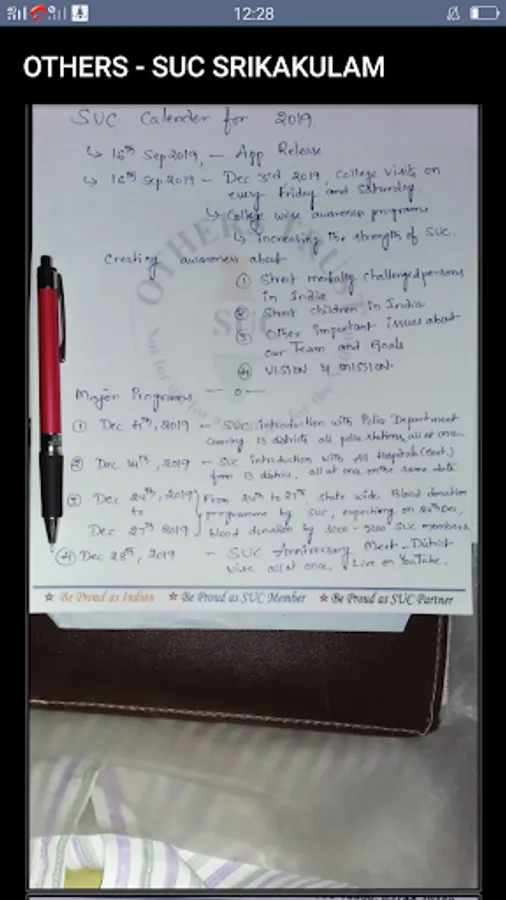 12:28
OTHERS - SUC SRIKAKULAM
SUC Calender for 2019.
↳ 16th Sep 2019, — App Release
↳ 16th Sep 2019 – Dec 3rd 2019, college visits on
every Friday and Saturday.
↳ College wise awareness programs
↳ increasing the strength of SUC.
Creating awareness about
① Street mentally challenged persons
in India
② Street children in India
③ Other important issues about
our Team and Goals
④ VISION & MISSION.
— o —
Major Programs
① Dec 4th, 2019 – SUC introduction with Police Department
covering 13 districts all police stations, all at once.
② Dec 14th, 2019 – SUC introduction with All Hospitals (Govt.)
from 13 district. all at once on the same date.
③ Dec 24th, 2019 to Dec 27th 2019
From 24th to 27th, state wide Blood donation
programme by SUC, expecting on 24th Dec,
blood donation by 3000 - 5000 SUC members
④ Dec 28th, 2019 – SUC Anniversary Meet – District
wise all at once. Live on YouTube.
OTHERS TRUST
SUC
☆ Be Proud as Indian ☆ Be Proud as SUC Member ☆ Be Proud as SUC Partner